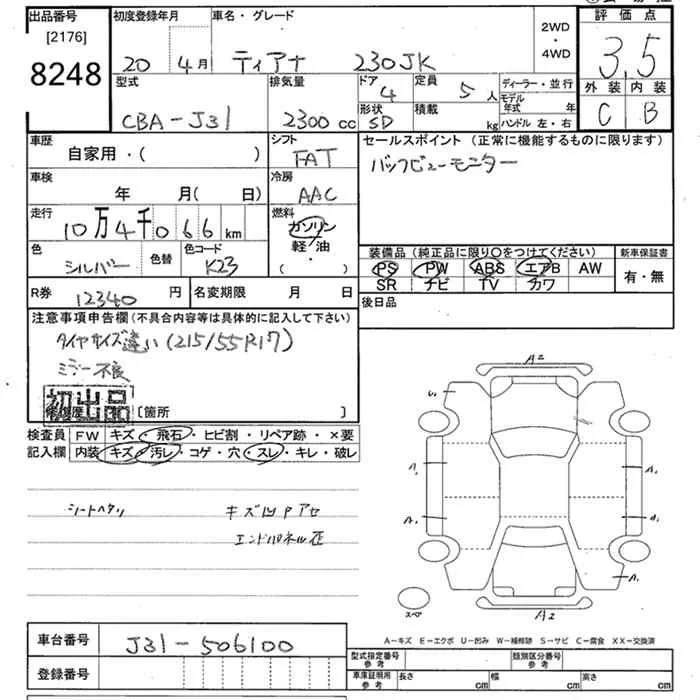 出品番号 初度登録年月 車名・グレード 2WD・4WD 評価点
[2176]
8248
20 4月 ティアナ 230JK 3.5
型式 排気量 ドア 定員 ディーラー・並行 外装 内装
CBA-J31 2300cc 4 5人 モデル年式 年 C B
形状 積載 kg ハンドル 左・右
SD
車歴 シフト セールスポイント (正常に機能するものに限ります)
自家用・( ) FAT バックビューモニター
車検 冷房
年 月(日) AAC
走行 燃料
10万4千066km ガソリン
軽・油
( )
色 色替 色コード
シルバー K23
装備品 (純正品に限り○をつけてください) 新車保証書
PS PW ABS エアB AW 有・無
SR ナビ TV カワ
R券 12340円 名変期限 月 日 後日品
注意事項申告欄 (不具合内容等は具体的に記入して下さい)
タイヤサイズ違い(215/55R17)
ミラー不良
初出品
修復歴 [箇所 ]
検査員 FW キズ・飛石・ヒビ割・リペア跡・×要
記入欄 内装 キズ・汚レ・コゲ・穴・スレ・キレ・破レ
シートヘタリ キズ凹Pアセ
エンドパネル歪
A2
U1
A1
A1
A1
A1
スペア
A2
A-キズ E-エクボ U-凹み W-補修跡 S-サビ C-腐食 XX-交換済
車台番号 J31-506100
登録番号
型式指定番号 参考 類別区分番号 参考
車庫証明用 参考 長さ cm 幅 cm 高さ cm